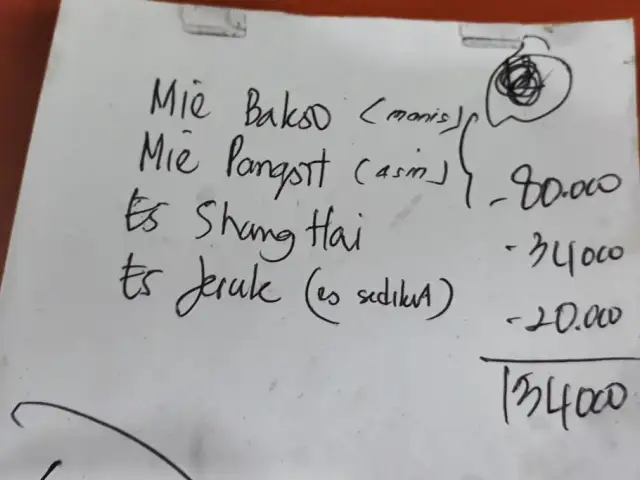 Mie Bakso (manis)
Mie Pangsit (asin) - 80.000
Es Shang Hai - 34000
Es Jeruk (es sedikit) - 20.000
134000